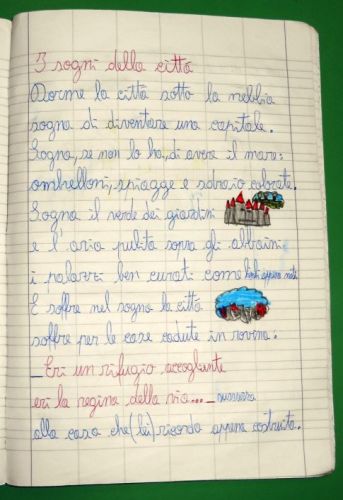 I sogni della città
Dorme la città sotto la nebbia
sogna di diventare una capitale.
Sogna, se non lo ha, di avere il mare:
ombrelloni, spiagge e sdraio colorate.
Sogna il verde dei giardini
e l'aria pulita sopra gli abbaini
i palazzi ben curati come bimbi appena nati
E soffre nel sogno la città
soffre per le case cadute in rovina:
_Eri un rifugio accogliente
eri la regina della via..._ sussurra
alla casa che (lei) ricorda appena costruita.